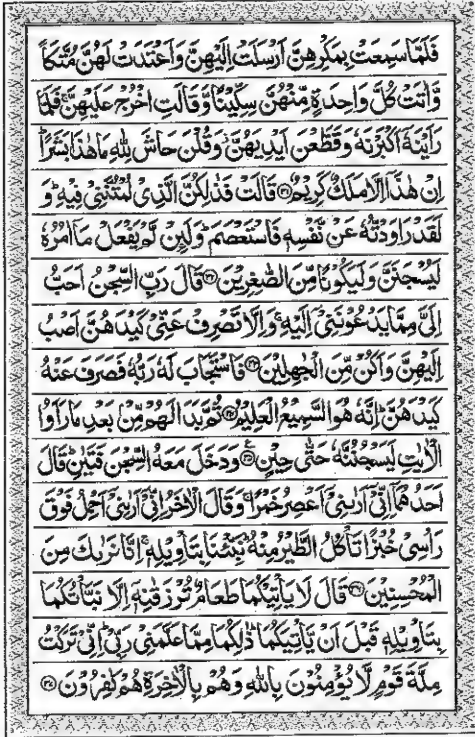 فَلَمَّا سَمِعَتْ بِمَكْرِهِنَّ اَرْسَلَتْ اِلَيْهِنَّ وَاَعْتَدَتْ لَهُنَّ مُتَّكَاً
وَّاٰتَتْ كُلَّ وَاحِدَةٍ مِّنْهُنَّ سِكِّيْنًا وَّقَالَتِ اخْرُجْ عَلَيْهِنَّ ۚ فَلَمَّا
رَاَيْنَهٗٓ اَكْبَرْنَهٗ وَقَطَّعْنَ اَيْدِيَهُنَّ وَقُلْنَ حَاشَ لِلّٰهِ مَا هٰذَا بَشَرًا ؕ
اِنْ هٰذَاۤ اِلَّا مَلَكٌ كَرِيْمٌ ﴿۳۱﴾ قَالَتْ فَذٰلِكُنَّ الَّذِيْ لُمْتُنَّنِيْ فِيْهِ ؕ وَ
لَقَدْ رَاوَدْتُّهٗ عَنْ نَّفْسِهٖ فَاسْتَعْصَمَ ؕ وَلَئِنْ لَّمْ يَفْعَلْ مَاۤ اٰمُرُهٗ
لَيُسْجَنَنَّ وَلَيَكُوْنًا مِّنَ الصّٰغِرِيْنَ ﴿۳۲﴾ قَالَ رَبِّ السِّجْنُ اَحَبُّ
اِلَيَّ مِمَّا يَدْعُوْنَنِيْۤ اِلَيْهِ ۚ وَاِلَّا تَصْرِفْ عَنِّيْ كَيْدَهُنَّ اَصْبُ
اِلَيْهِنَّ وَاَكُنْ مِّنَ الْجٰهِلِيْنَ ﴿۳۳﴾ فَاسْتَجَابَ لَهٗ رَبُّهٗ فَصَرَفَ عَنْهُ
كَيْدَهُنَّ ؕ اِنَّهٗ هُوَ السَّمِيْعُ الْعَلِيْمُ ﴿۳۴﴾ ثُمَّ بَدَا لَهُمْ مِّنْۢ بَعْدِ مَا رَاَوُا
الْاٰيٰتِ لَيَسْجُنُنَّهٗ حَتّٰى حِيْنٍ ﴿۳۵﴾ ع وَدَخَلَ مَعَهُ السِّجْنَ فَتَيٰنِ ؕ قَالَ
اَحَدُهُمَاۤ اِنِّيْۤ اَرٰىنِيْۤ اَعْصِرُ خَمْرًا ۚ وَقَالَ الْاٰخَرُ اِنِّيْۤ اَرٰىنِيْۤ اَحْمِلُ فَوْقَ
رَاْسِيْ خُبْزًا تَاْكُلُ الطَّيْرُ مِنْهُ ؕ نَبِّئْنَا بِتَاْوِيْلِهٖ ۚ اِنَّا نَرٰىكَ مِنَ
الْمُحْسِنِيْنَ ﴿۳۶﴾ قَالَ لَا يَاْتِيْكُمَا طَعَامٌ تُرْزَقٰنِهٖۤ اِلَّا نَبَّاْتُكُمَا
بِتَاْوِيْلِهٖ قَبْلَ اَنْ يَّاْتِيَكُمَا ؕ ذٰلِكُمَا مِمَّا عَلَّمَنِيْ رَبِّيْ ؕ اِنِّيْ تَرَكْتُ
مِلَّةَ قَوْمٍ لَّا يُؤْمِنُوْنَ بِاللّٰهِ وَهُمْ بِالْاٰخِرَةِ هُمْ كٰفِرُوْنَ ﴿۳۷﴾